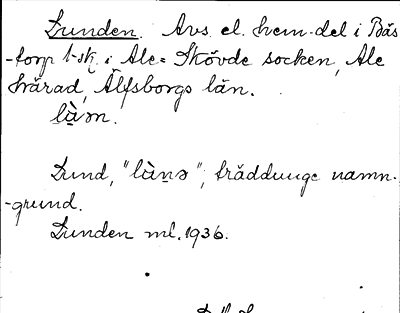 Lunden. Avs. el. hem.del i Bås
-torp 1-sk. i Ale-Skövde socken, Ale
härad, Älfsborgs län.
Lund, "là̱nə", träddunge namn-
-grund.
Lunden ml. 1936.